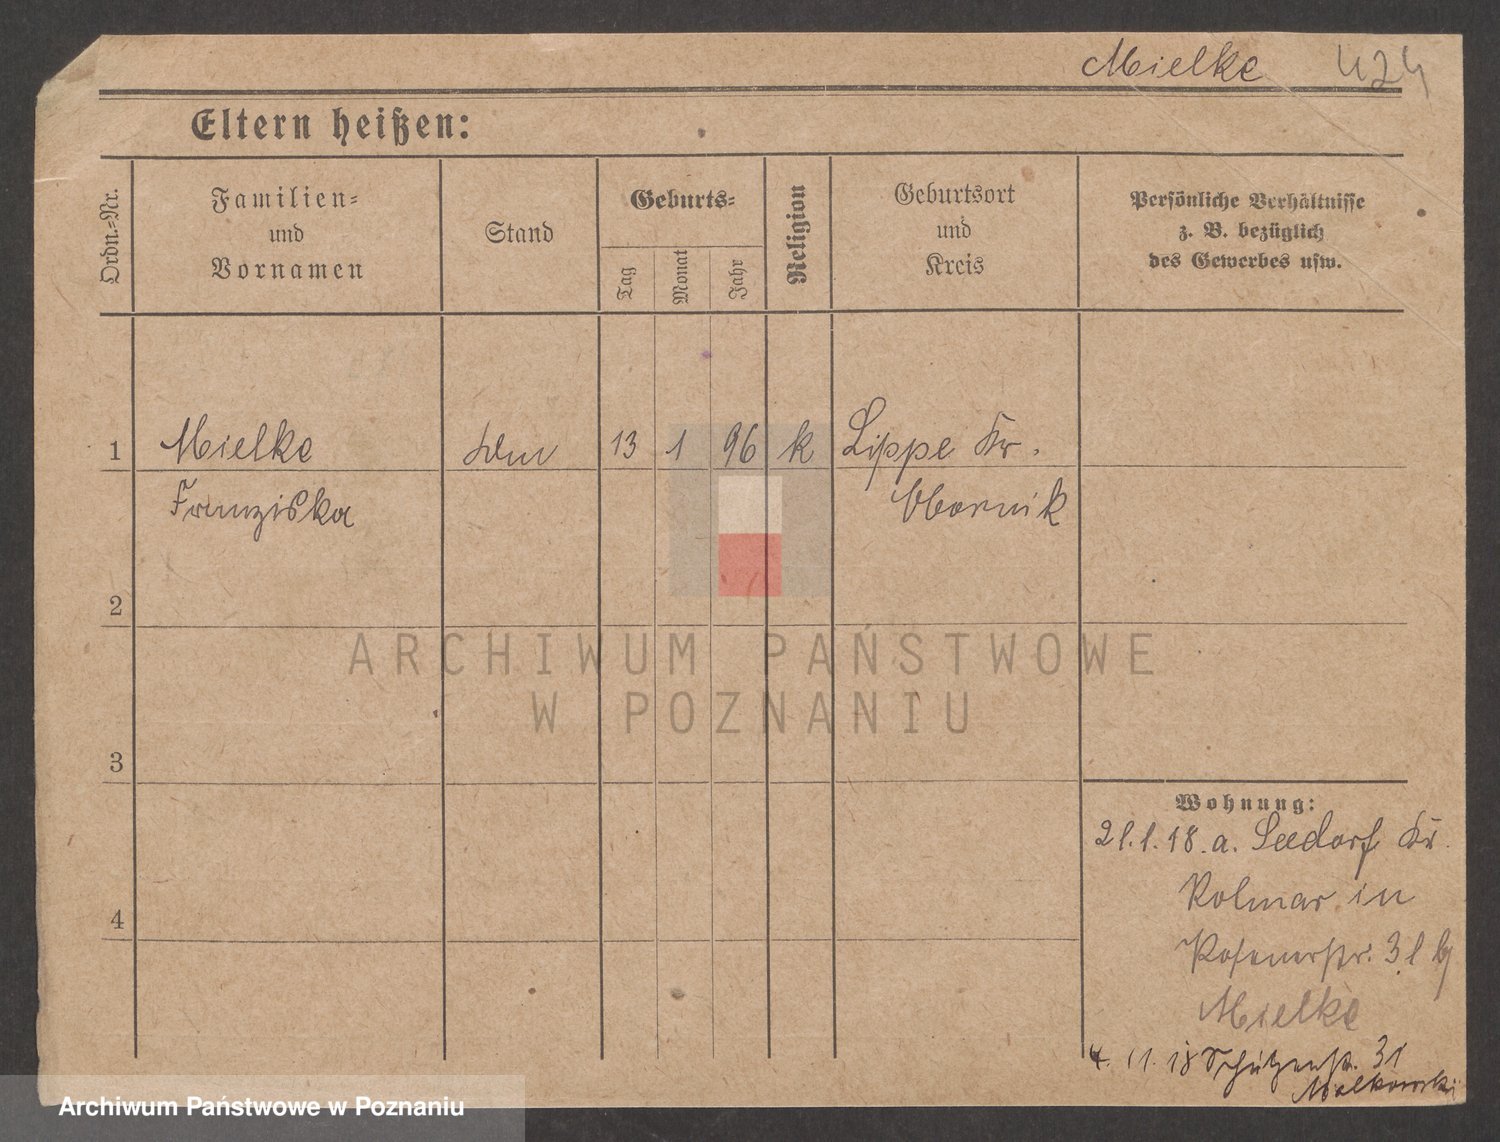 Mielke 424
Eltern heißen:
Ordn.-Nr.
Familien-
und
Vornamen
Stand
Geburts-
Tag
Monat
Jahr
Religion
Geburtsort
und
Kreis
Persönliche Verhältnisse
z. B. bezüglich
des Gewerbes usw.
1 Mielke 13 1 96 k Lippe Kr.
Franziska Obornik
2
ARCHIWUM PAŃSTWOWE
W POZNANIU
3
Wohnung:
21.1.18. a. Seedorf Kr.
4 Kolmar in
Posenerstr. 31 b/
Mielke
4. 11. 18 Schützenstr. 31
Malkowski
Archiwum Państwowe w Poznaniu